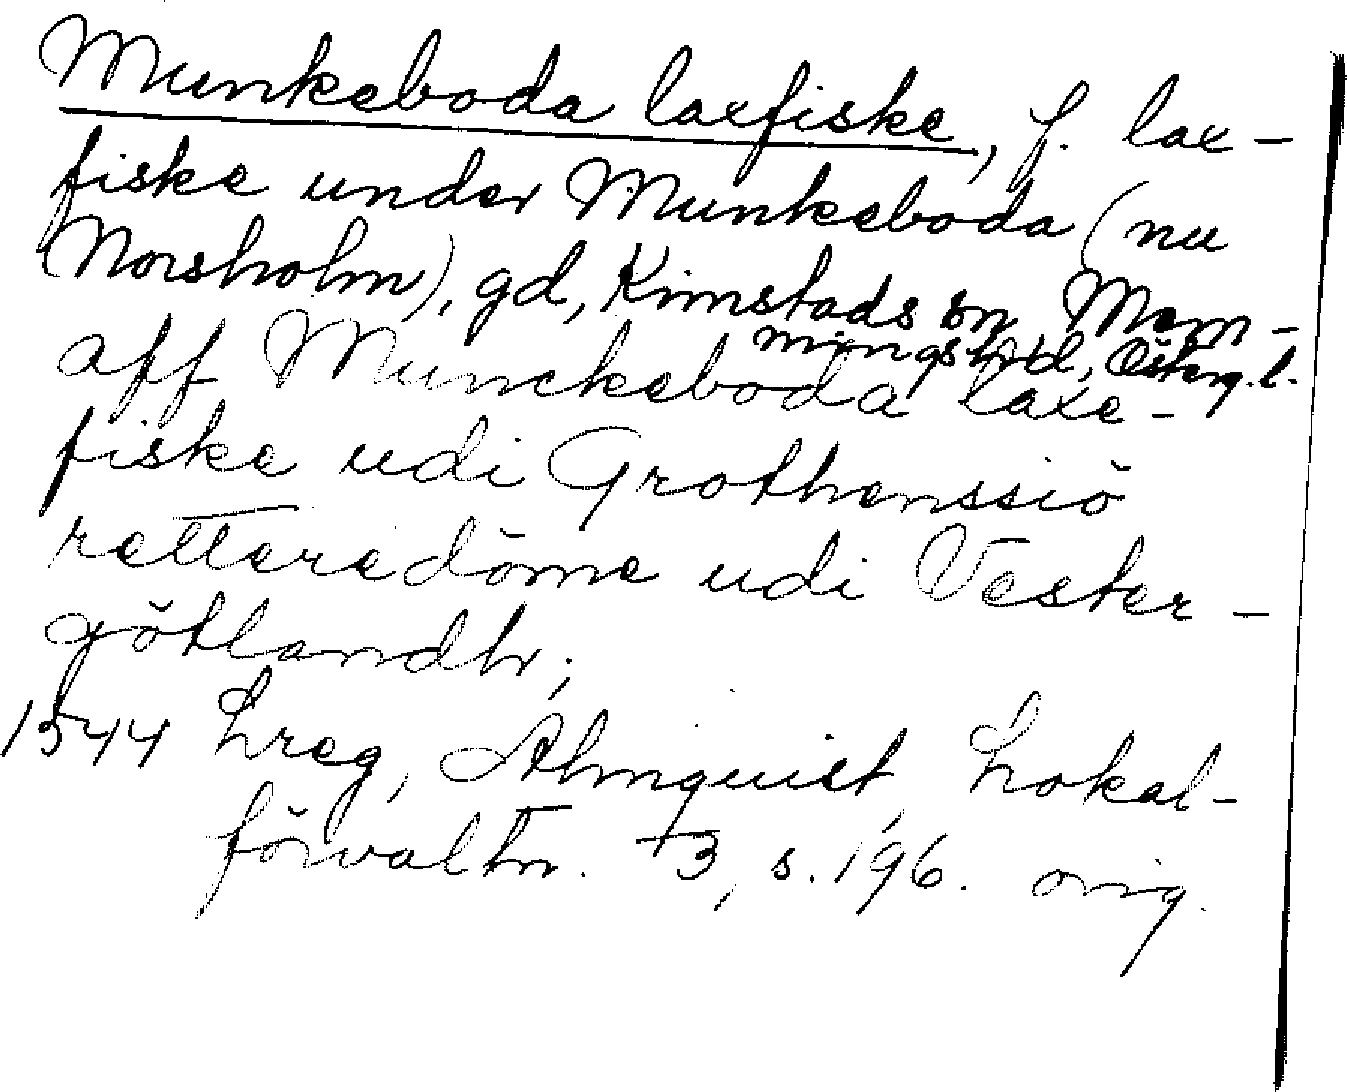 Munkeboda laxfiske, f. lax-
fiske under Munkeboda (nu
Norsholm), gd, Kimstads sn Mem-
mings hd, Österg. l.
aff Munckeboda laxe-
fiske udi Grothenssiö
retteredöme udi Vester-
götlandh;
1544 Lreg, Almquist, Lokal-
förvaltn. 3, s. 196. orig.